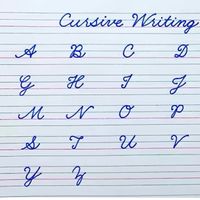 Cursive Writing
A B C D
G H I J
M N O P
S T U V
Y Z